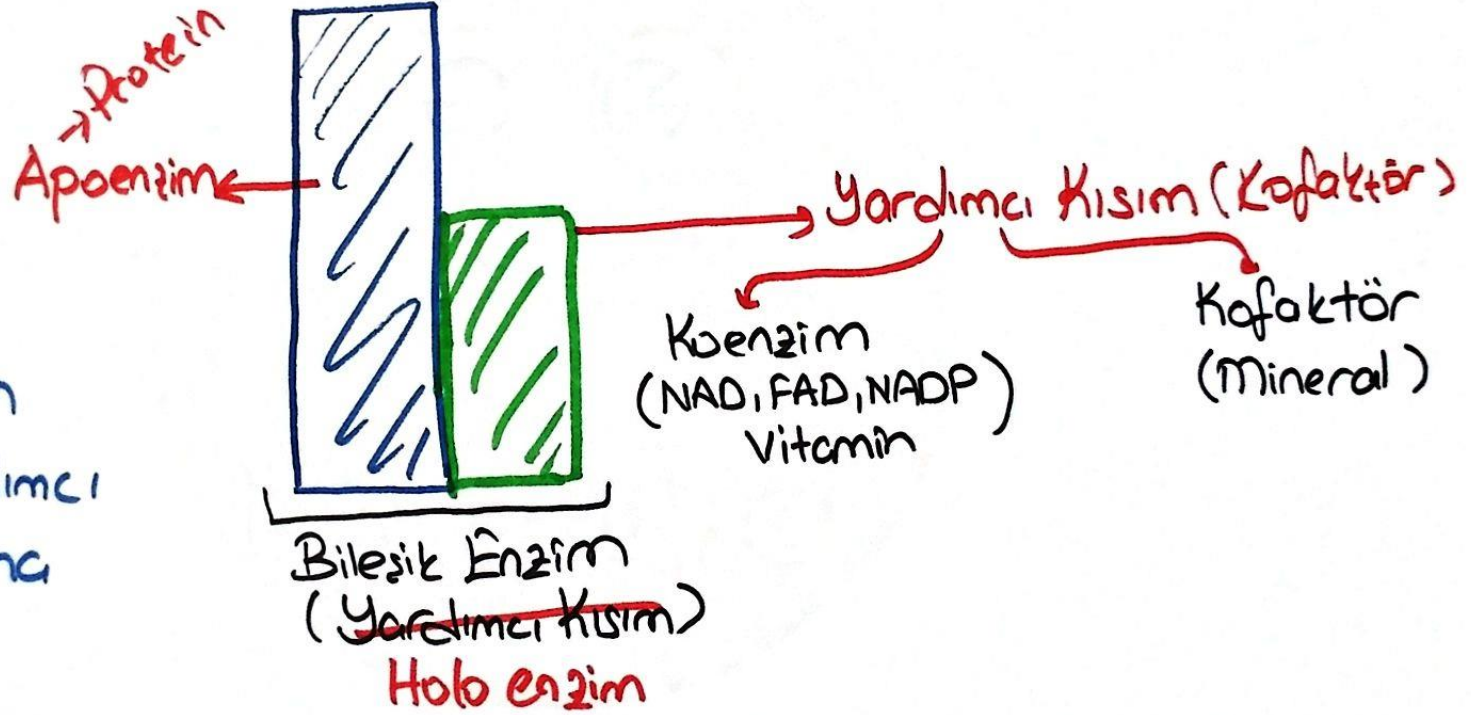 →Protein
Apoenzim
Yardımcı Kısım (Kofaktör)
Koenzim
(NAD, FAD, NADP)
Vitamin
Kofaktör
(Mineral)
Bileşik Enzim
(Yardımcı Kısım)
Holo enzim